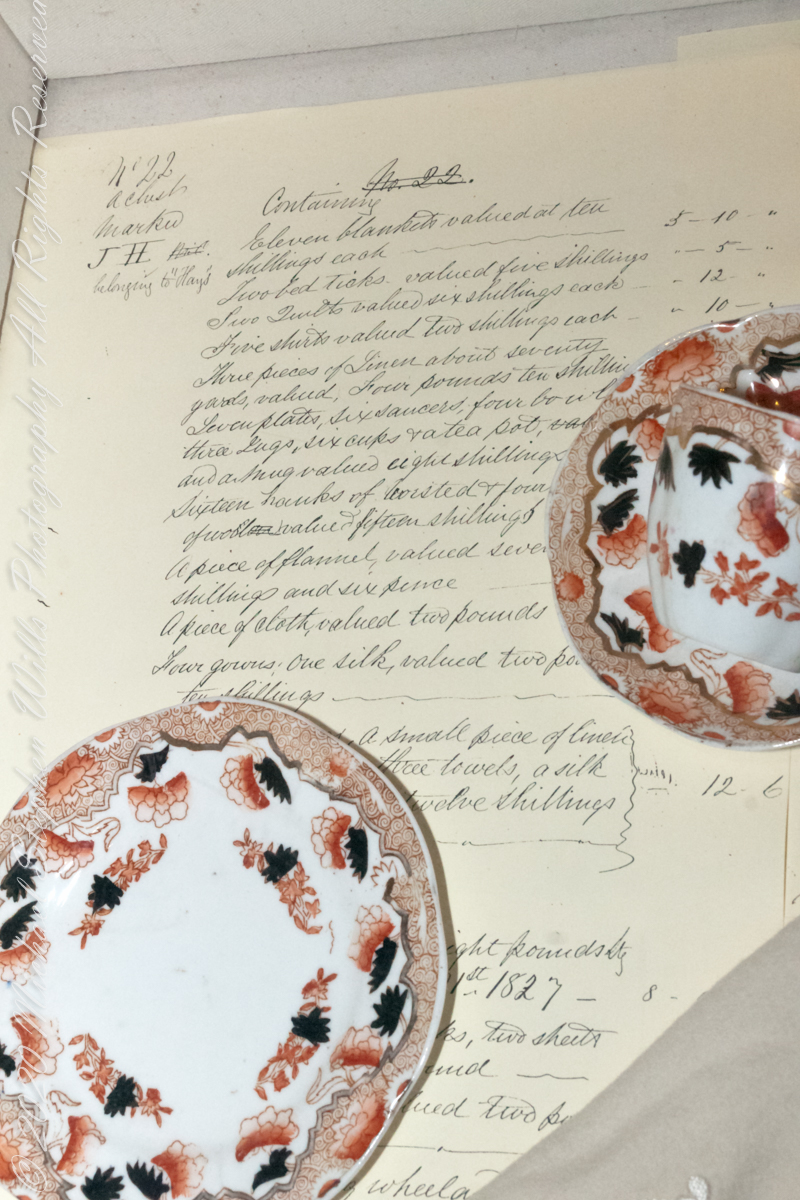 No 22
a chest
Marked
J H
belonging to "Hays
No. 22.
Containing
Eleven blankets valued at ten
shillings each 5 - 10 - "
Two bed ticks valued five shillings " - 5 - "
Two Quilts valued six shillings each - " 12 - "
Five shirts valued two shillings each - " 10 - "
Three pieces of Linen about seventy
yards, valued, Four pounds ten shillin
Seven plates, six saucers, four bowl
three Jugs, six cups & a tea pot,
and a Mug valued eight shillings
Sixteen hanks of worsted & four
of valued fifteen shillings
A piece of flannel, valued seven
shillings and six pence
A piece of cloth, valued two pounds
Four gowns, one silk, valued two po
ten shillings
a small piece of linen
three towels, a silk
twelve shillings 12 - 6
ight pounds
1st 1827 - 8 -
ks, two sheets
und
lued two po
wheel a
John Wills Photography All Rights Reserved